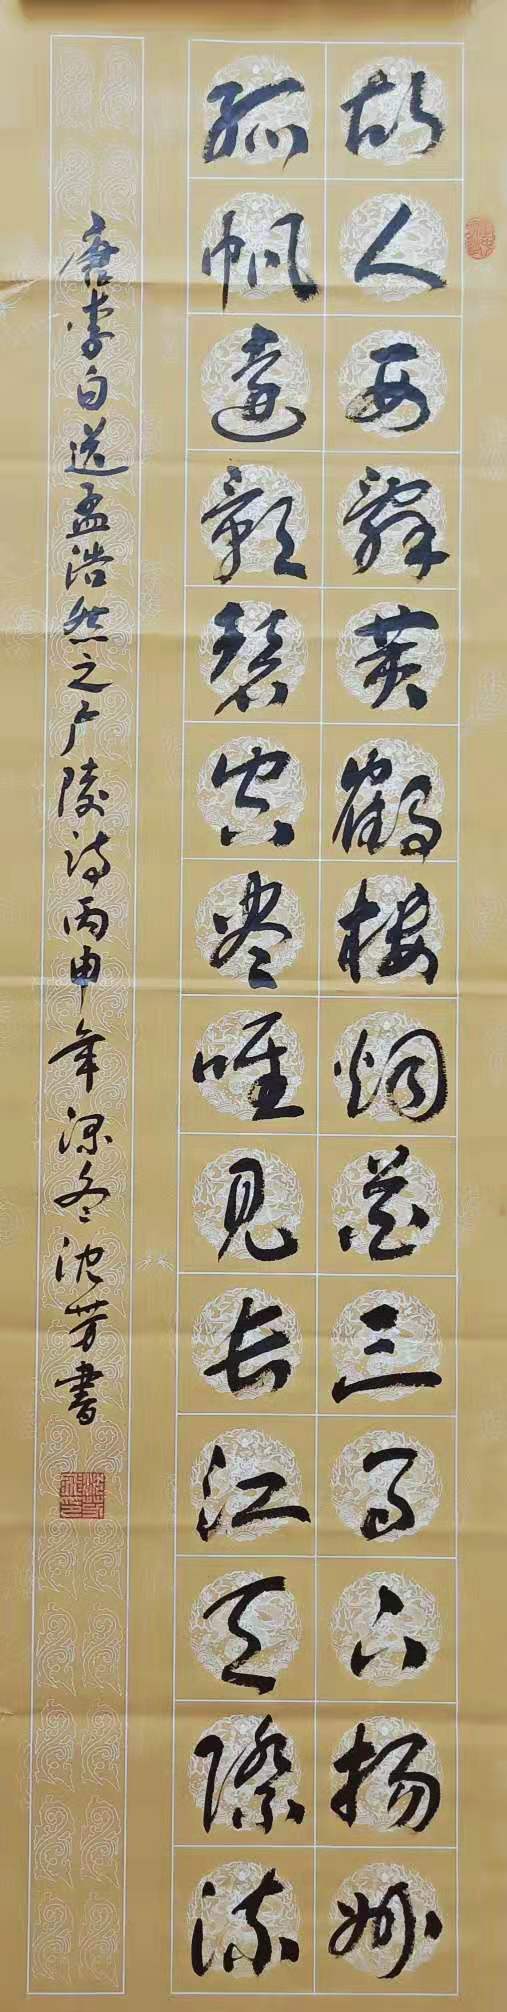 故人西辞黄鹤楼烟花三月下扬州
孤帆远影碧空尽唯见长江天际流
唐李白送孟浩然之广陵诗丙申年深冬沈芳书